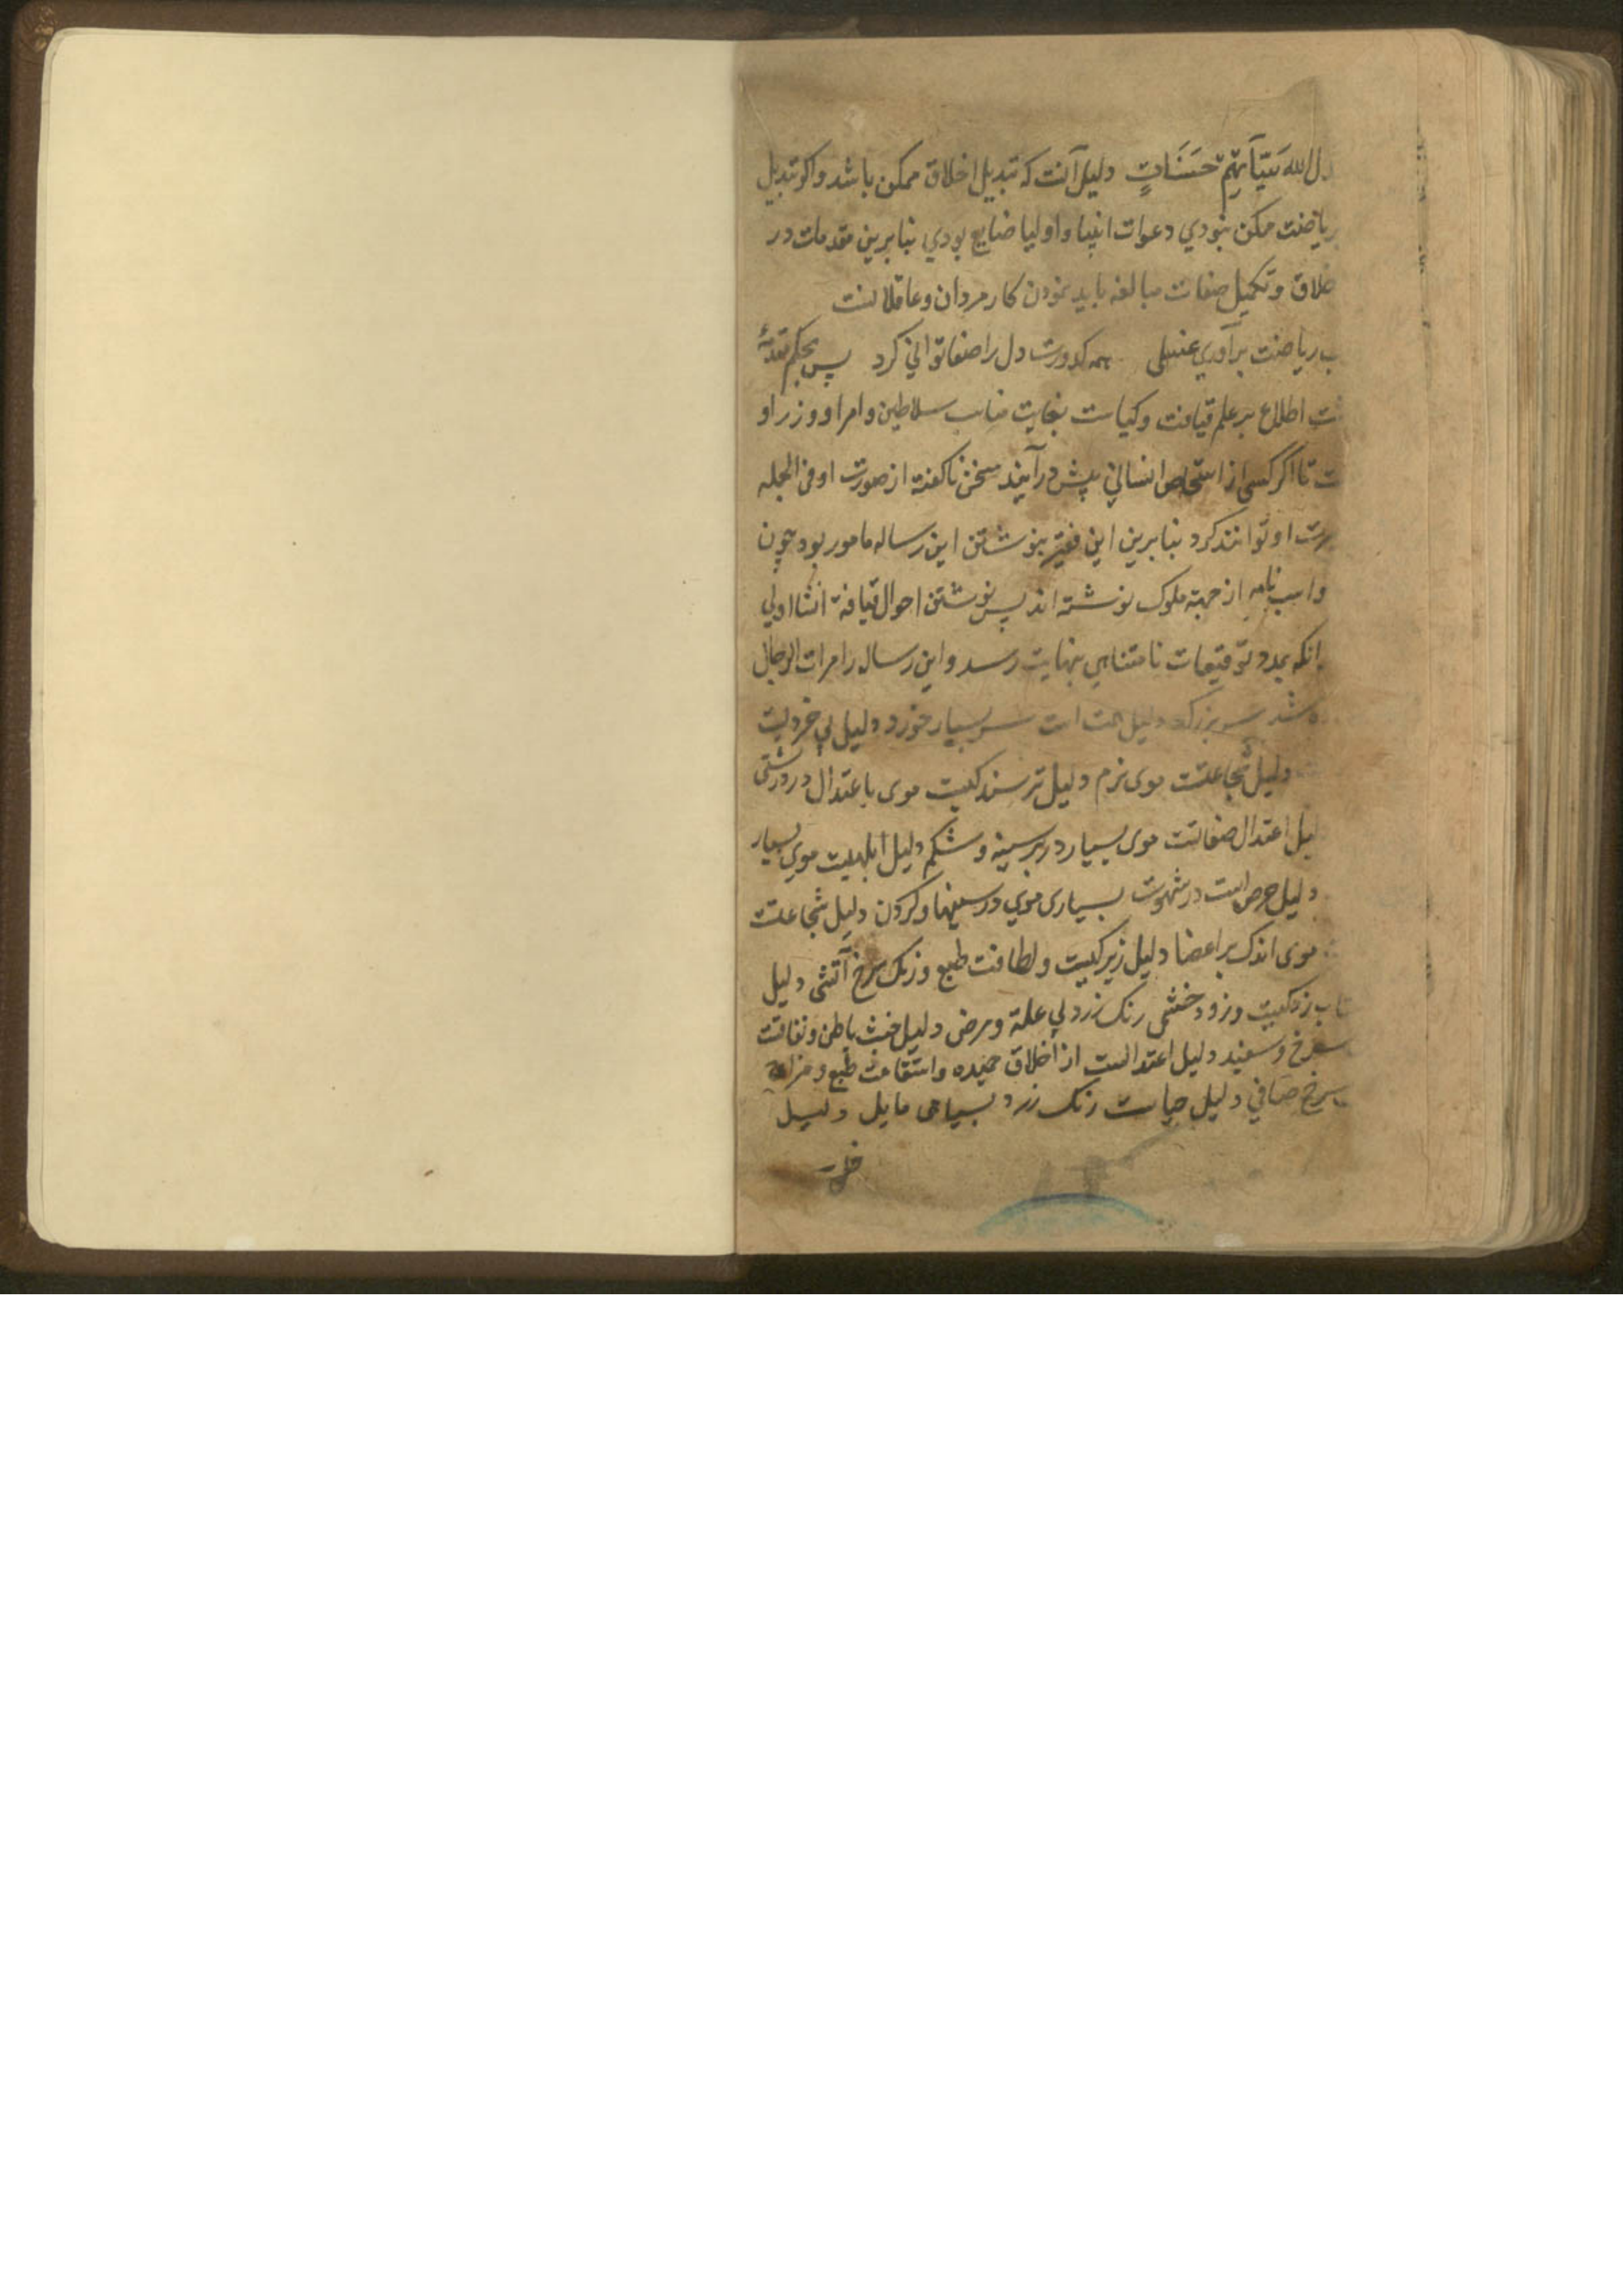 دل الله سَیّآتِهِمْ حَسَنَاتٍ دلیل آنست که تبدیل اخلاق ممکن باشد و اکر تبدیل
ریاضت ممکن نبودی دعوات انبیا و اولیا ضایع بودی بنابرین مقدمات در
خلاق و تکمیل صفات مبالغه باید نمودن کار مردان و عاقلانست
ب ریاضت برآوری غسلی همه کدورت دل را صفا توانی کرد پس بحکم مقدمهٔ
اطلاع بر علم قیافت و کیاست بغایت مناسب سلاطین و امرا و وزرا و
ت تا اکر کسی از اشخاص انسانی پیش درآیند سخن ناکفته از صورت او فی الجمله
او توانند کرد بنابرین این فقیر بنوشتن این رساله مامور بود چون
و اسب نامه از جهة ملوک نوشته اند پس نوشتن احوال قیافة انشا اولی
انکه بمدد توفیقات نامتناهی بنهایت رسد و این رساله را مرات الرجال
شد سر بزرک دلیل همت است سر بسیار خورد دلیل بی خردیست
دلیل شجاعتست موی نرم دلیل ترسندکیست موی باعتدال در درشتی
لیل اعتدال صفاتست موی بسیار در بر سینه و شکم دلیل ابلهیست موی بسیار
دلیل حرص است در شهوت بسیاری موی در سینها و کردن دلیل شجاعتست
موی اندک بر اعضا دلیل زیرکیست و لطافت طبع و رنک سرخ آتشی دلیل
زدکیست و زود خشمی رنک زرد بی علة و مرض دلیل خبث باطن و نفاقست
سرخ و سفید دلیل اعتدالست از اخلاق حمیده و استقامت طبع و مزاج
سرخ صافی دلیل حیاست رنک زرد بسیاهی مایل دلیل